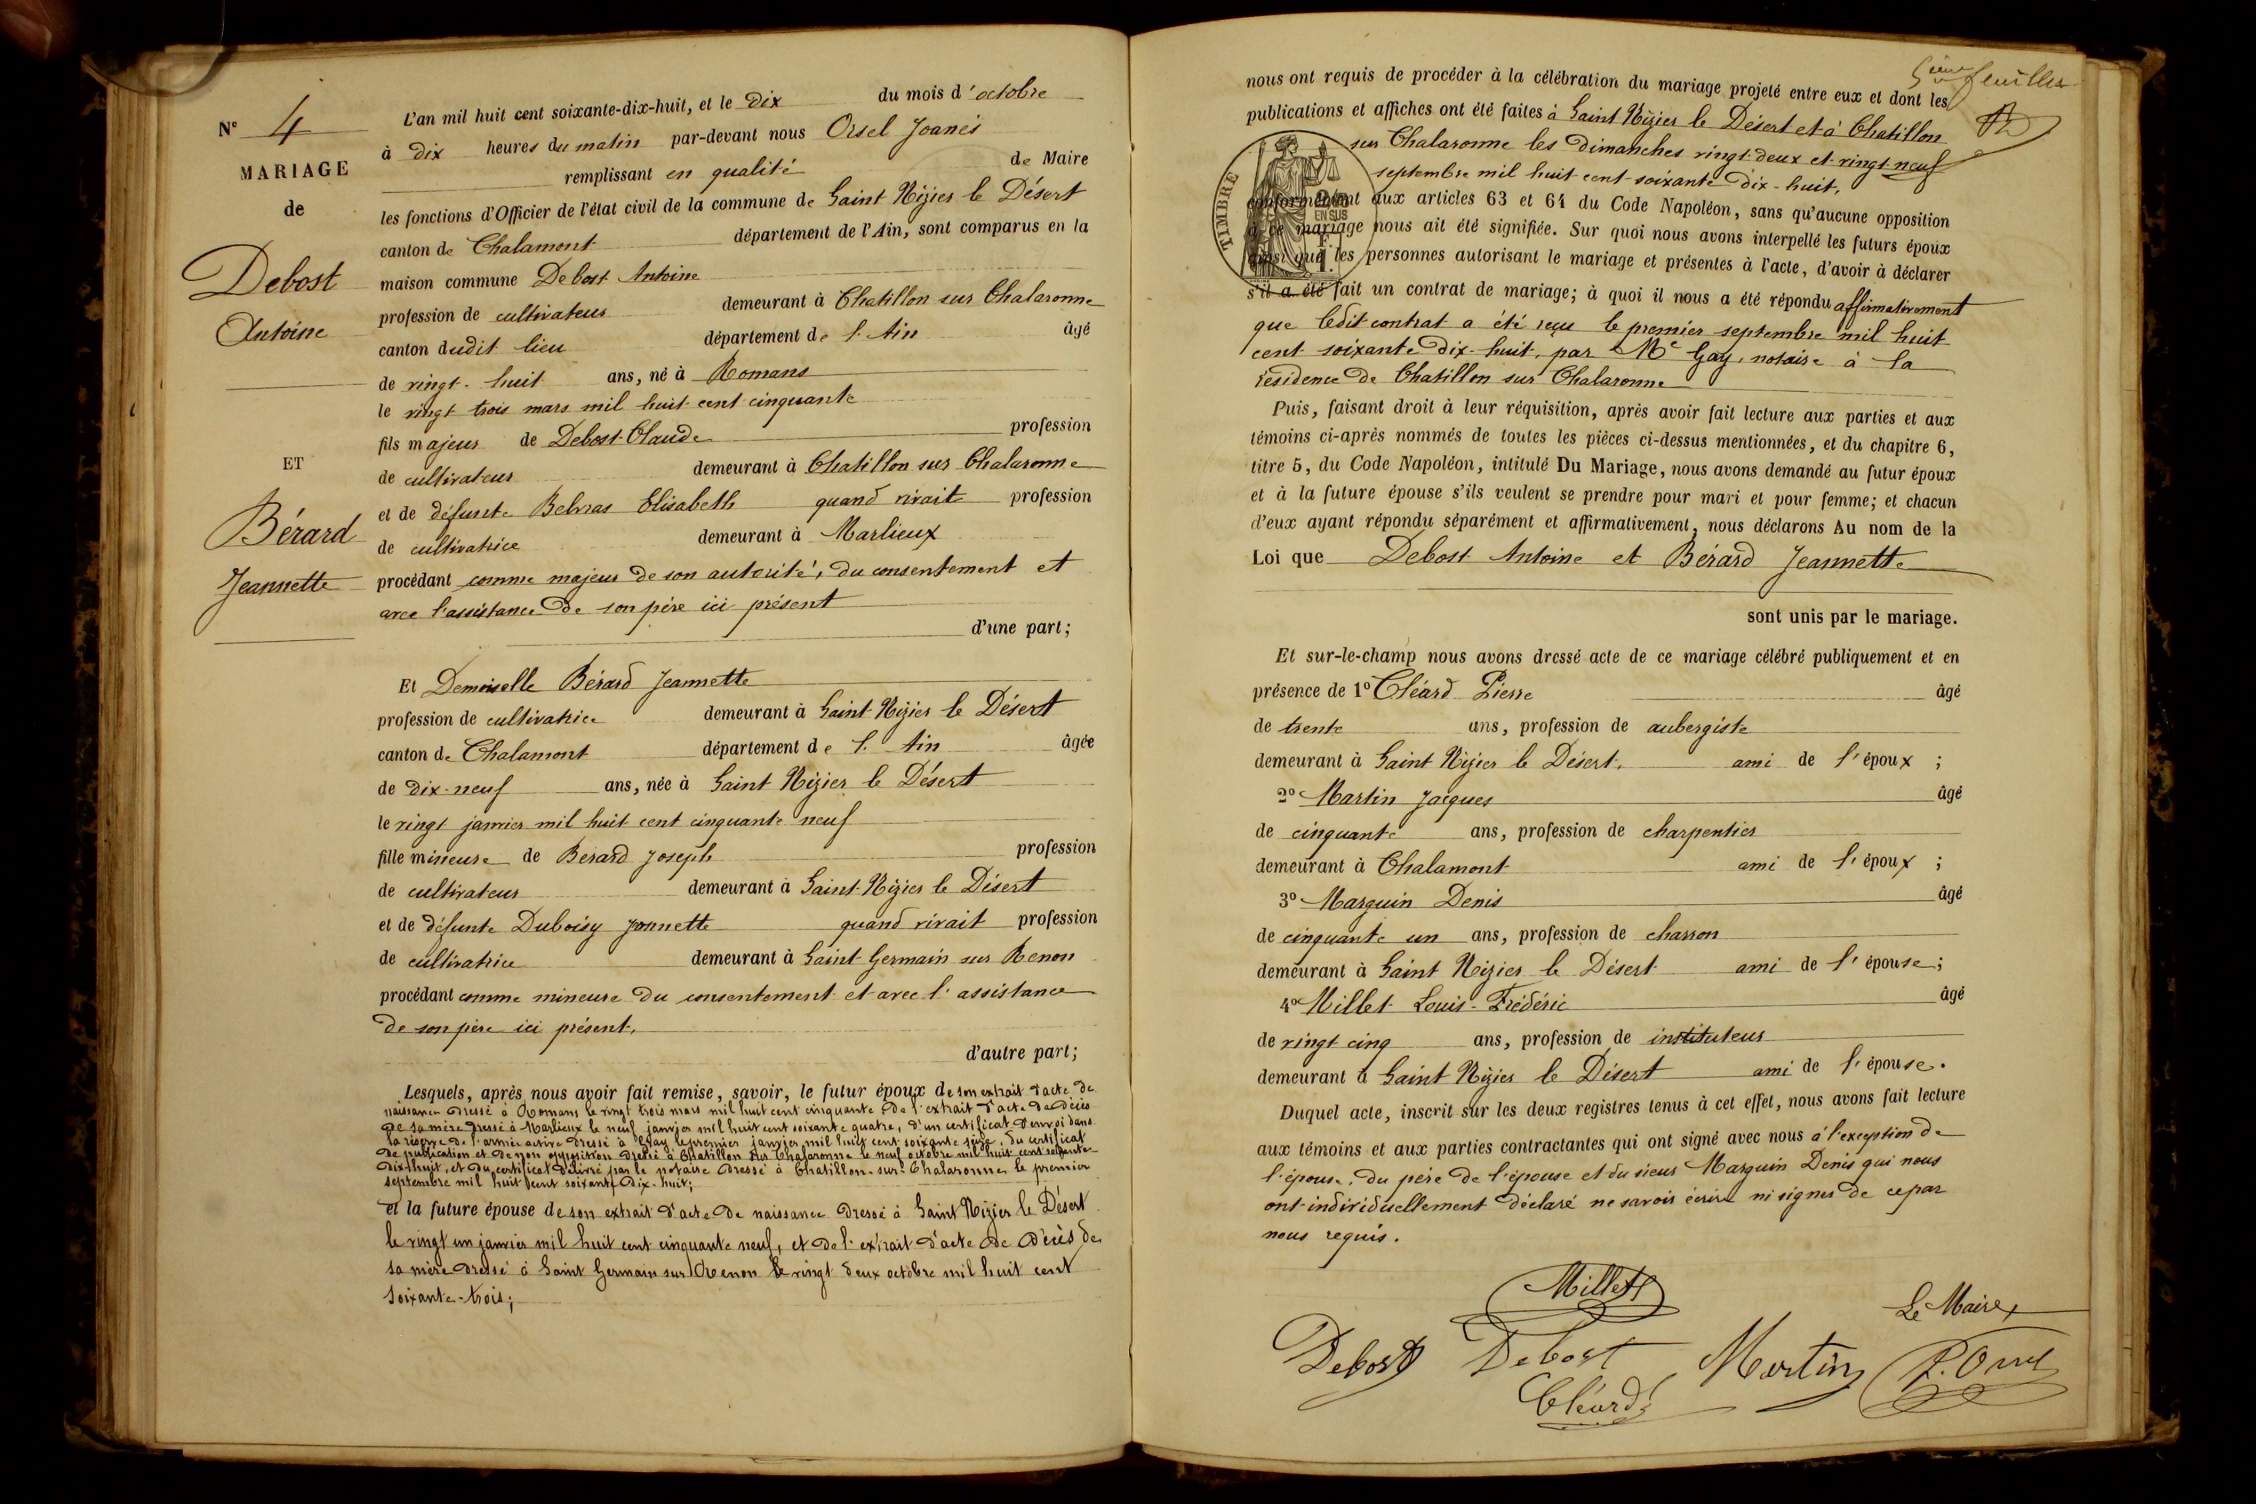 N° 4
MARIAGE
de
Debost
Antoine
ET
Bérard
Jeannette
L'an mil huit cent soixante-dix-huit, et le dix du mois d'octobre
à dix heures du matin par-devant nous Orsel Joanès
remplissant en qualité de Maire
les fonctions d'Officier de l'état civil de la commune de Saint Nizier le Désert
canton de Chalamont département de l'Ain, sont comparus en la
maison commune Debost Antoine
profession de cultivateur demeurant à Chatillon sur Chalaronne
canton dudit lieu département de l'Ain âgé
de vingt-huit ans, né à Romans
le vingt trois mars mil huit cent cinquante
fils majeur de Debost Claude profession
de cultivateur demeurant à Chatillon sur Chalaronne
et de défunte Elisabeth quand vivait profession
de cultivatrice demeurant à Marlieux
procédant comme majeur de son autorité, du consentement et
avec l'assistance de son père ici présent
d'une part;
Et Demoiselle Bérard Jeannette
profession de cultivatrice demeurant à Saint Nizier le Désert
canton de Chalamont département de l'Ain âgée
de dix-neuf ans, née à Saint Nizier le Désert
le vingt janvier mil huit cent cinquante neuf
fille mineure de Bérard Joseph profession
de cultivateur demeurant à Saint-Nizier le Désert
et de défunte Duboisy Jonnette quand vivait profession
de cultivatrice demeurant à Saint Germain sur Renon
procédant comme mineure du consentement et avec l'assistance
de son père ici présent,
d'autre part;
Lesquels, après nous avoir fait remise, savoir, le futur époux de son extrait d'acte de
naissance dressé à Romans le vingt trois mars mil huit cent cinquante, de l'extrait d'acte de décès
de sa mère dressé à Marlieux le neuf janvier mil huit cent soixante quatre, d'un certificat d'envoi dans
la réserve de l'armée active dressé à le premier janvier mil huit cent soixante, du certificat
de publication et de non opposition dressé à Chatillon sur Chalaronne le neuf octobre mil huit cent soixante-
dix-huit, et du certificat délivré par le notaire dressé à Chatillon-sur-Chalaronne le premier
septembre mil huit cent soixante dix-huit;
et la future épouse de son extrait d'acte de naissance dressé à Saint Nizier le Désert
le vingt un janvier mil huit cent cinquante neuf, et de l'extrait d'acte de décès de
sa mère dressé à Saint Germain sur Renon le vingt deux octobre mil huit cent
soixante-trois;
5ième feuillet
nous ont requis de procéder à la célébration du mariage projeté entre eux et dont les
publications et affiches ont été faites à Saint Nizier le Désert et à Chatillon
sur Chalaronne les dimanches vingt-deux et vingt-neuf
septembre mil huit cent soixante dix-huit,
TIMBRE
2/10
EN SUS
F.
1.
conformément aux articles 63 et 64 du Code Napoléon, sans qu'aucune opposition
à ce mariage nous ait été signifiée. Sur quoi nous avons interpellé les futurs époux
ainsi que les personnes autorisant le mariage et présentes à l'acte, d'avoir à déclarer
s'il a été fait un contrat de mariage; à quoi il nous a été répondu affirmativement
que ledit contrat a été reçu le premier septembre mil huit
cent soixante dix-huit, par Me Gay, notaire à la
résidence de Chatillon sur Chalaronne
Puis, faisant droit à leur réquisition, après avoir fait lecture aux parties et aux
témoins ci-après nommés de toutes les pièces ci-dessus mentionnées, et du chapitre 6,
titre 5, du Code Napoléon, intitulé Du Mariage, nous avons demandé au futur époux
et à la future épouse s'ils veulent se prendre pour mari et pour femme; et chacun
d'eux ayant répondu séparément et affirmativement, nous déclarons Au nom de la
Loi que Debost Antoine et Bérard Jeannette
sont unis par le mariage.
Et sur-le-champ nous avons dressé acte de ce mariage célébré publiquement et en
présence de 1° Cléard Pierre âgé
de trente ans, profession de aubergiste
demeurant à Saint Nizier le Désert, ami de l'époux ;
2° Martin Jacques âgé
de cinquante ans, profession de charpentier
demeurant à Chalamont ami de l'époux ;
3° Marguin Denis âgé
de cinquante un ans, profession de charron
demeurant à Saint Nizier le Désert ami de l'épouse ;
4° Millet Louis-Frédéric âgé
de vingt cinq ans, profession de instituteur
demeurant à Saint Nizier le Désert ami de l'épouse.
Duquel acte, inscrit sur les deux registres tenus à cet effet, nous avons fait lecture
aux témoins et aux parties contractantes qui ont signé avec nous à l'exception de
l'épouse, du père de l'épouse et du sieur Marguin Denis qui nous
ont individuellement déclaré ne savoir écrire ni signer de ce par
nous requis.
Millet
Le Maire
Debost Debost Martin
Cléard